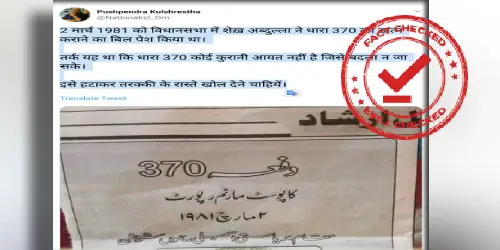 Pushpendra Kulshrestha
@Nationalist_Om
2 मार्च 1981 को विधानसभा में शेख़ अब्दुल्ला ने धारा 370 को खत्म
कराने का बिल पेश किया था।
तर्क यह था कि धारा 370 कोई कुरानी आयत नहीं है जिसे बदला न जा
सके।
इसे हटाकर तरक्की के रास्ते खोल देने चाहियें।
Translate Tweet
FACT CHECKED
FACT CHECKED
دفعہ 370
کا پوسٹ مارٹم رپورٹ
۲ مارچ ۱۹۸۱